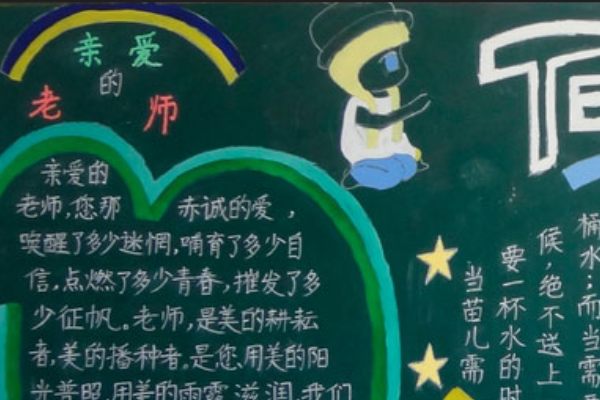 亲爱
的
老师
亲爱的
老师,您那赤诚的爱,
唤醒了多少迷惘,哺育了多少自
信,点燃了多少青春,摧发了多
少征帆。老师,是美的耕耘
者,美的播种者。是您用美的阳
光普照,用美的雨露滋润,我们
TE
桶水;而当需
候,绝不送上
要一杯水的时
当苗儿需